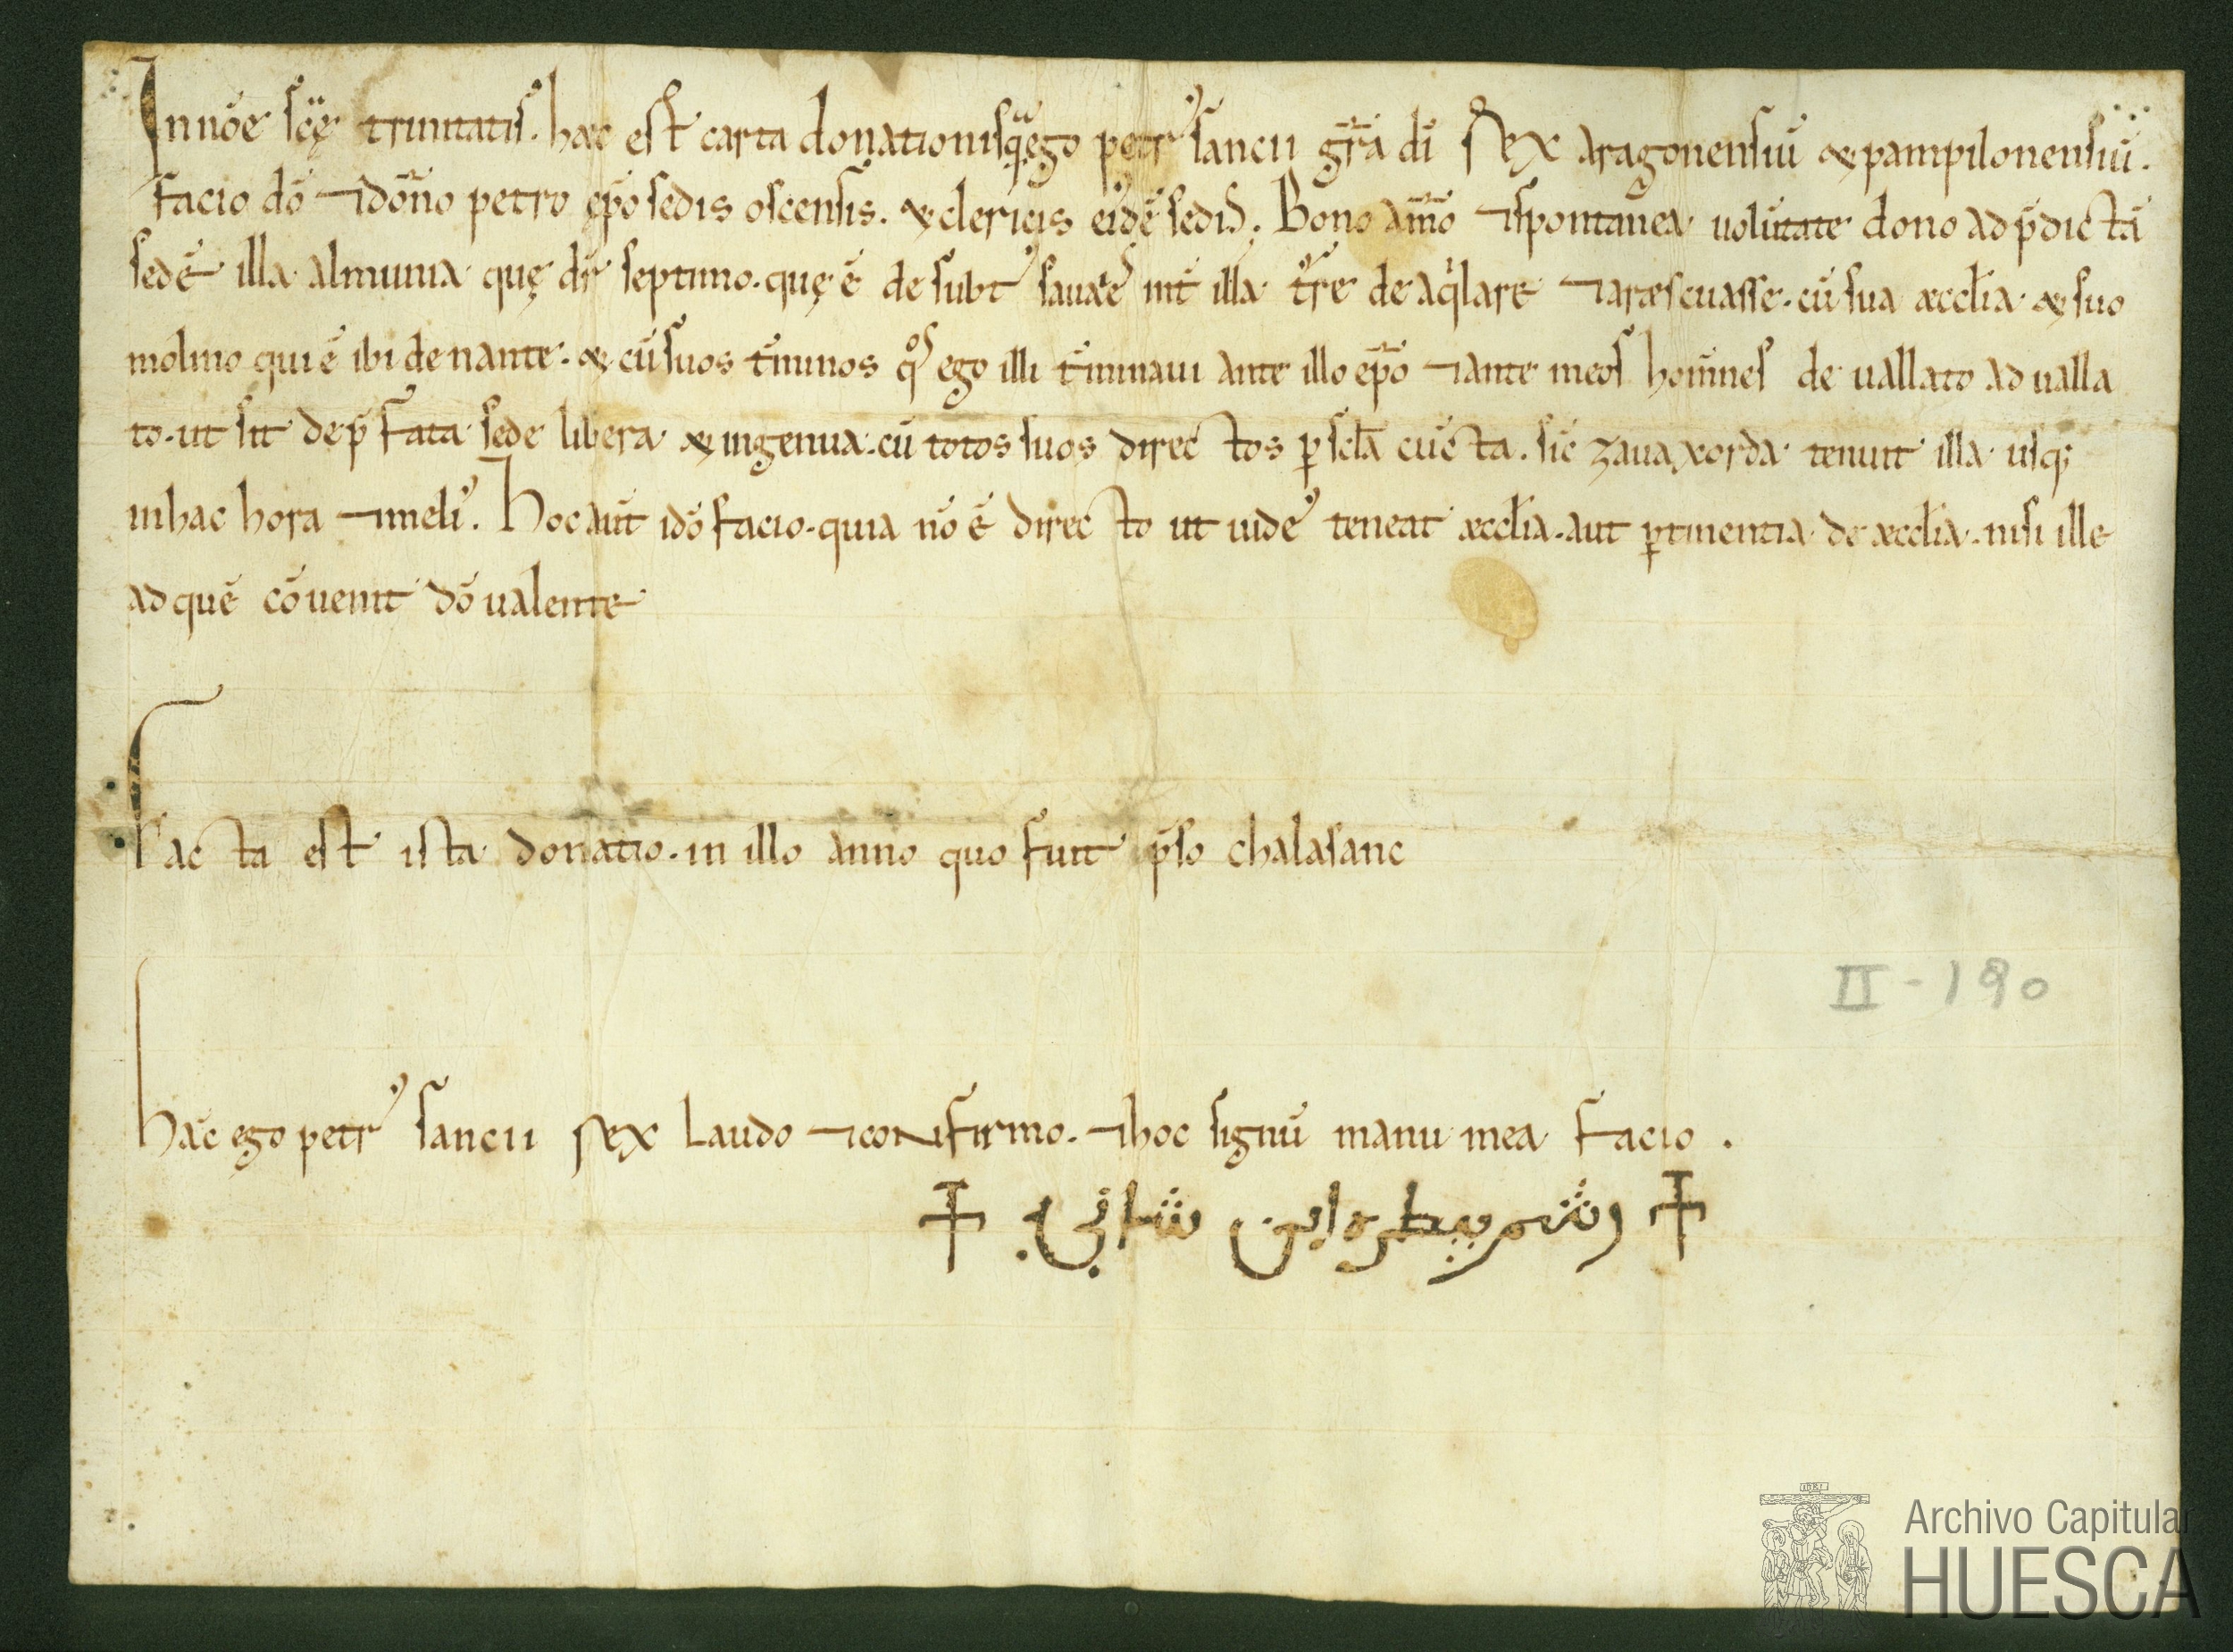 In nõe scę trinitatis. hæc est carta donationis quã ego petrus sancii gr̃a dĩ Rex aragonensiũ et pampilonensiũ.
facio dõ et dõno petro ep̃o sedis oscensis. et clericis eiusdẽ sedis. Bono amõ et spontanea uolũtate dono ad p̃dictã
sedẽ illa almunia quę dr̃ septimo. quę ẽ de subtus int̃ illa de aqilare cũ sua æccl̃ia et suo
molino qui ẽ ibi denante. et cũ suos t̃minos qos ego illi t̃minaui ante illo ep̃o et ante meos homines de uallato ad ualla
to. ut sit de p̃fata sede libera et ingenua. cũ totos suos directos cũcta. sic zauaxorda tenuit illa usq;
in hac hora et melius. Hoc aut̃ idõ facio. quia nõ ẽ directo ut iudeus teneat æccl̃ia. aut ꝑtinentia de æccl̃ia. nisi ille
ad quẽ cõuenit dõ ualente
Facta est ista donatio. in illo anno quo fuit p̃so chalasanc
Hãc ego petrus sancii Rex laudo et confirmo. et hoc signũ manu mea facio.
☩ وشم بيطره ابن شانجه ☩
II - 190
Archivo Capitular
HUESCA